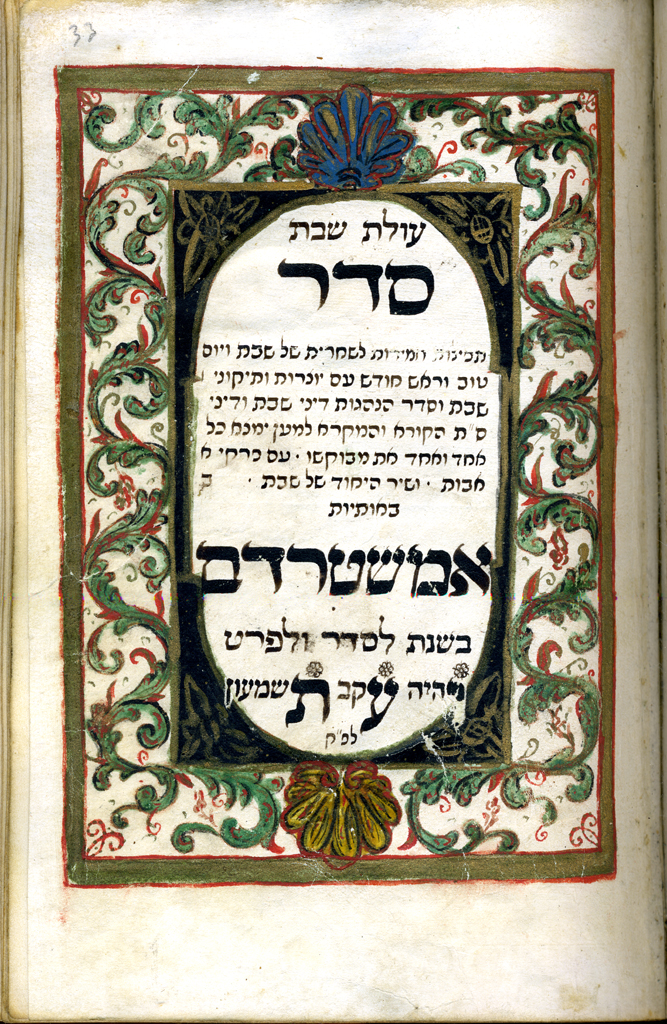 33
עולת שבת
סדר
תפילות וזמירות לשחרית של שבת ויום
טוב וראש חודש עם יוצרות ותיקוני
שבת וסדר הנהגות דיני שבת ודיני
ס״ת הקורא והמקרא למען ימצא כל
אחד ואחד את מבוקשו · עם פרקי א
אבות · ושיר היחוד של שבת · ב
באותיות
אמשטרדם
בשנת לסדר ולפרט
והיה עקב תשמעון
לפ״ק